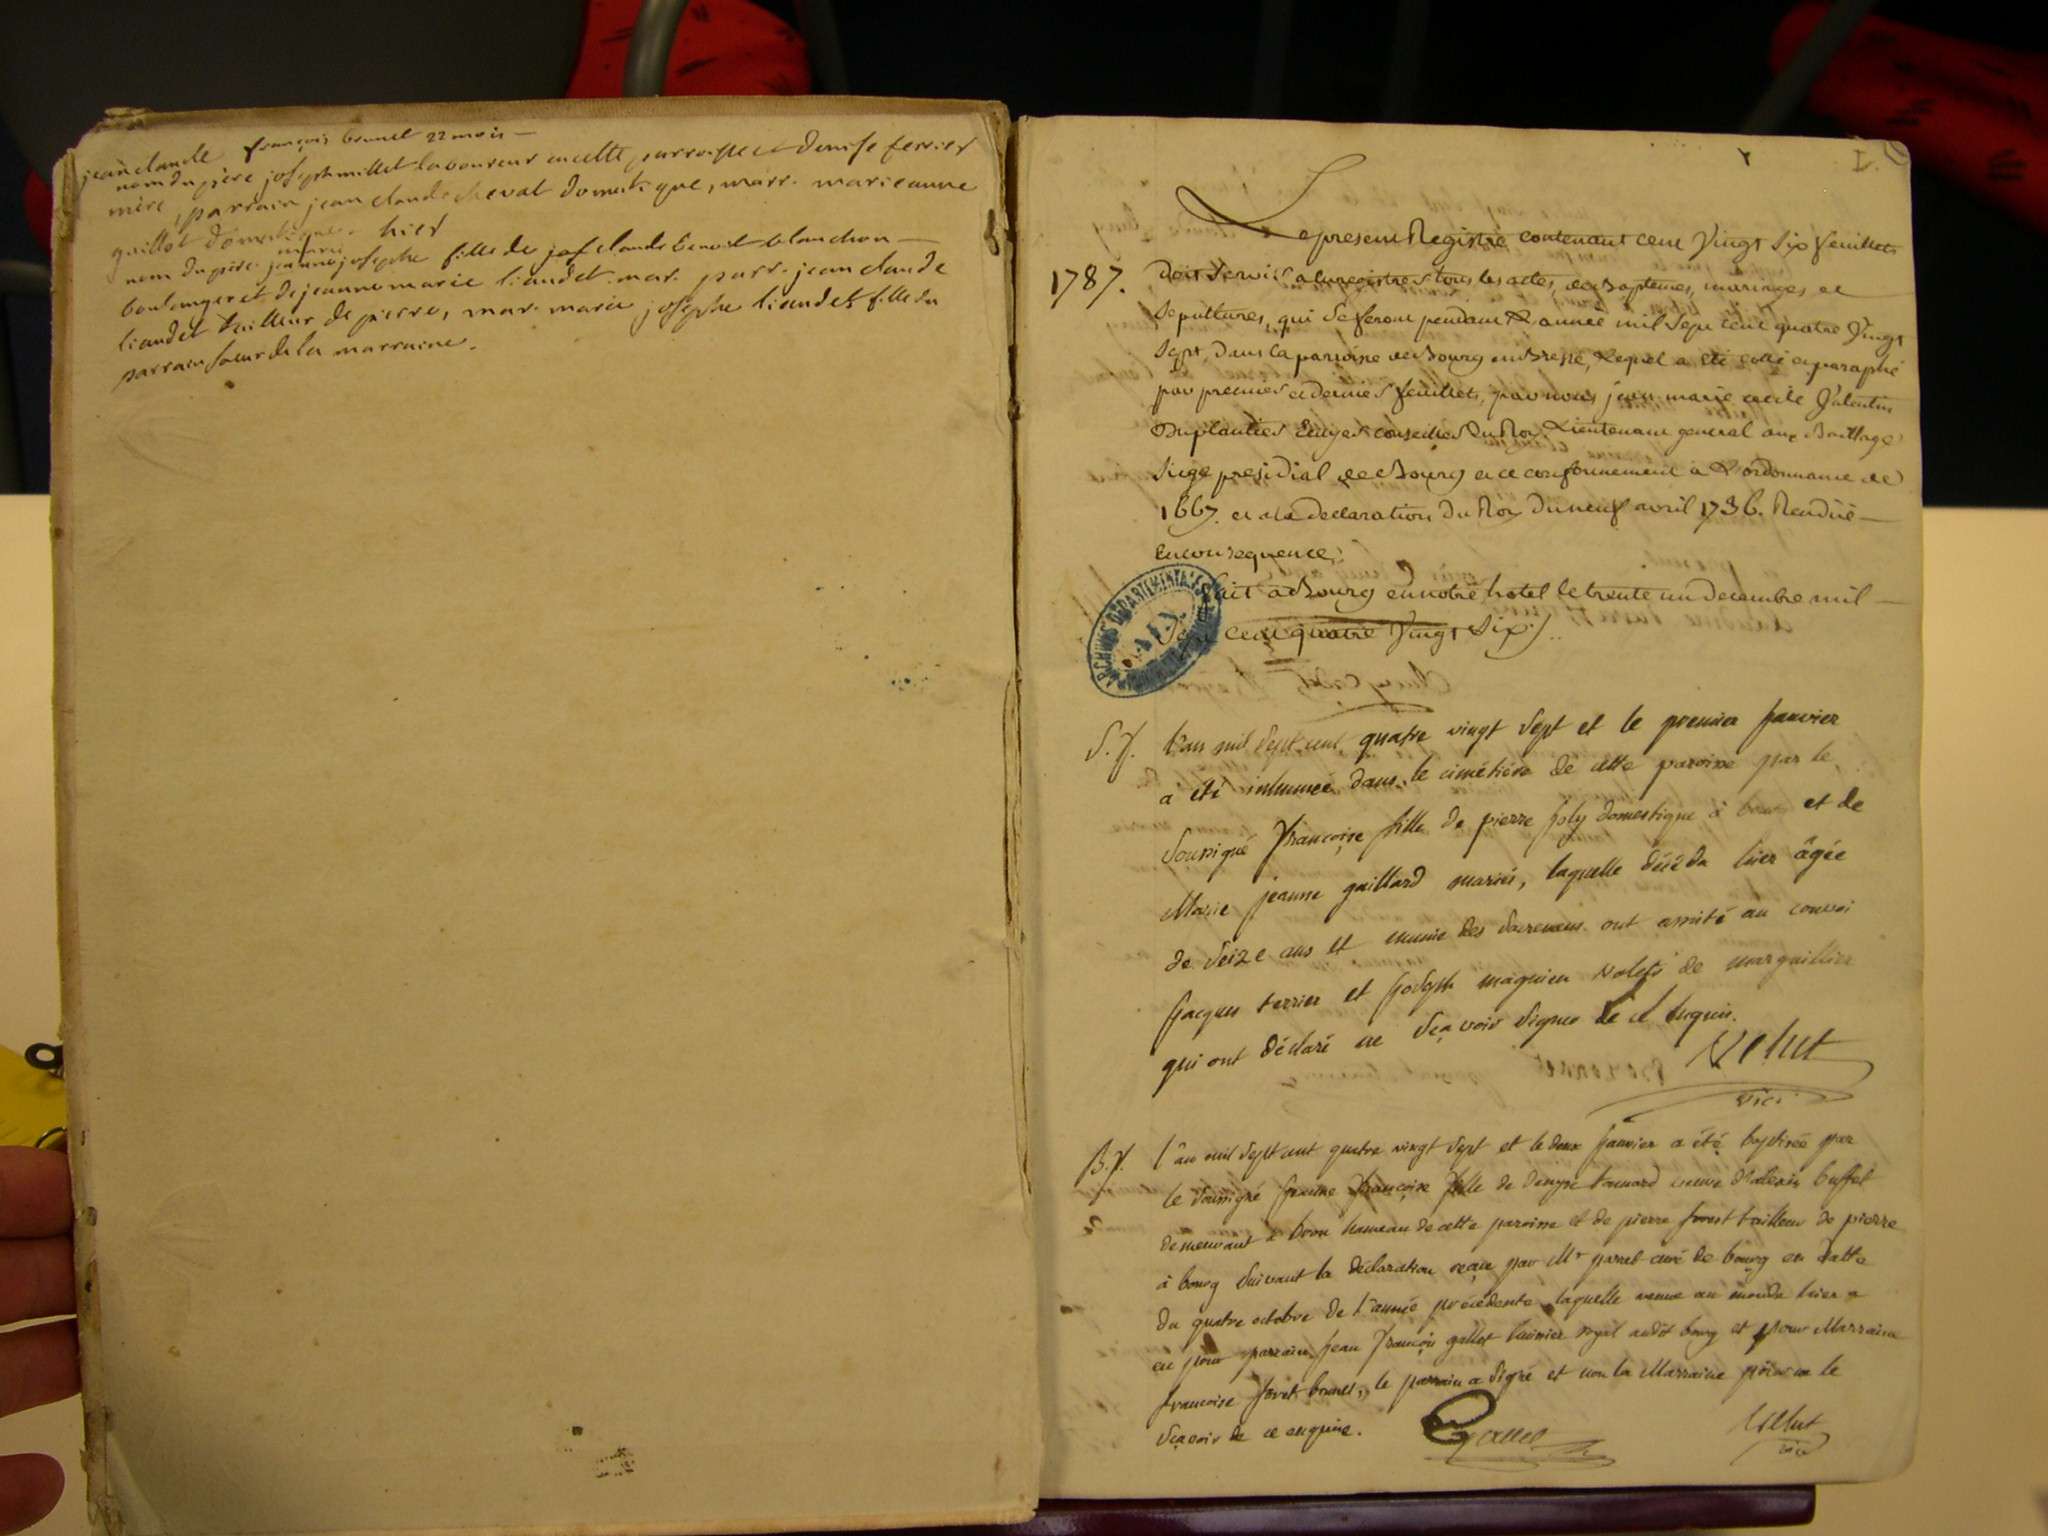 françois brunet 22 mois
jean claude
nom du père joseph millet laboureur en cette parroisse et denise ferrier
mère, parrain jean claude cheval domestique, marr. marie anne
guillot domestique. hier
nom du père. marie josephe fille de jos claude benoit blanchon
boulanger et de jeanne marie liaudet. mar. parr. jean claude
liaudet tailleur de pierre, mar. marie josephe liaudet fille du
parrain soeur de la marraine.
1.
Le present Registre contenant cent Vingt Six feuillets
1787. doit Servir a enregistrer tous les actes, de Baptemes, mariages et
Sepultures, qui Se feront pendant L'année mil Sept cent quatre Vingt
Sept, dans la paroisse de Bourg en Bresse, Lequel a été cotté et paraphé
par premier et dernier feuillets, par nous jean marie cecile Valentin
Duplantier Ecuyer conseiller du Roy Lieutenant general aux Bailliage
Siege presidial de Bourg et ce conformement a L'ordonnance de
1667. et a la declaration du Roy du neuf avril 1736. Rendüe
en consequence;
fait a Bourg en notre hotel le trente un decembre mil
cent quatre Vingt Six
ARCHIVES DÉPARTEMENTALES
AIN
S. J. L'an mil Sept cent quatre vingt Sept et le premier Janvier
a été inhumée dans le cimétière de cette paroisse par le
Soussigné Françoise fille de pierre Joly domestique à bourg et de
Marie jeanne gaillard mariés, laquelle décéda hier âgée
de Seize ans et munie des Sacremens. ont assisté au convoi
Jacques terrier et Joseph magnien Valets de marguillier
qui ont déclaré ne Sçavoir Signer de ce enquis.
Velut
vic:
B. J. L'an mil Sept cent quatre vingt Sept et le deux Janvier a été baptisée par
le Soussigné Jeanne Françoise fille de denyse tournard veuve d'alexis buffet
demeurant a brou hameau de cette paroisse et de pierre foret tailleur de pierre
à bourg Suivant la déclaration reçue par Mr parret curé de bourg en datte
du quatre octobre de l'année précédente, laquelle venue au monde hier a
eu pour parrain Jean François gallet huissier royal audit bourg et pour Marraine
francoise foret brunet, le parrain a Signé et non la Marraine pour ne le
Sçavoir de ce enquise.
Gallet
Velut
vic